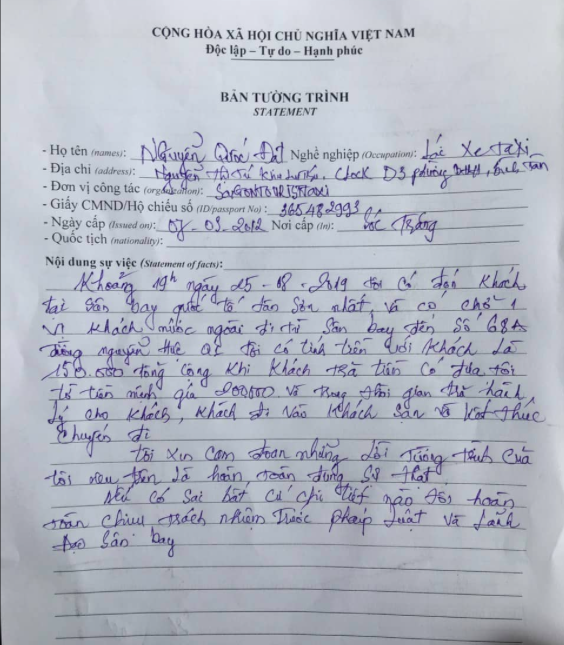 CỘNG HÒA XÃ HỘI CHỦ NGHĨA VIỆT NAM
Độc lập – Tự do – Hạnh phúc
BẢN TƯỜNG TRÌNH
STATEMENT
- Họ tên (names): Nguyễn Quốc Đạt Nghề nghiệp (Occupation): Lái Xe taxi
- Địa chỉ (address): Nguyễn Thị Tú D3 phường
- Đơn vị công tác (organization): SAIGONTOURIST TAXI
- Giấy CMND/Hộ chiếu số (ID/passport No): 365482993
- Ngày cấp (Issued on): 07-03-2012 Nơi cấp (In): Sóc Trăng
- Quốc tịch (nationality):
Nội dung sự việc (Statement of facts):
Khoảng 19h ngày 25-08-2019 tôi có đón khách
tại sân bay quốc tế tân sơn nhất và có chở 1
vị khách nước ngoài đi từ sân bay đến số 68A
đường nguyễn Q1 tôi có tính tiền với khách là
150.000 tổng cộng khi khách trả tiền có đưa tôi
tờ tiền mệnh giá 200000 và trong thời gian trả hành
lý cho khách, khách đi vào khách sạn và kết thúc
chuyến đi
tôi xin cam đoan những lời tường trình của
tôi nêu trên là hoàn toàn đúng sự thật
Nếu có sai bất cứ chi tiết nào tôi hoàn
toàn chịu trách nhiệm trước pháp luật và lãnh
đạo sân bay